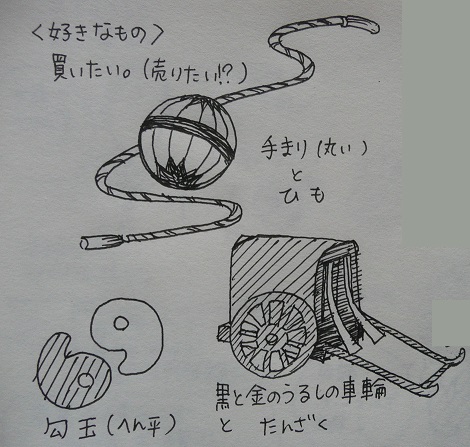 〈好きなもの〉
買いたい。(売りたい!?)
手まり(丸い)
と
ひも
勾玉(へん平)
黒と金のうるしの車輪
と たんざく